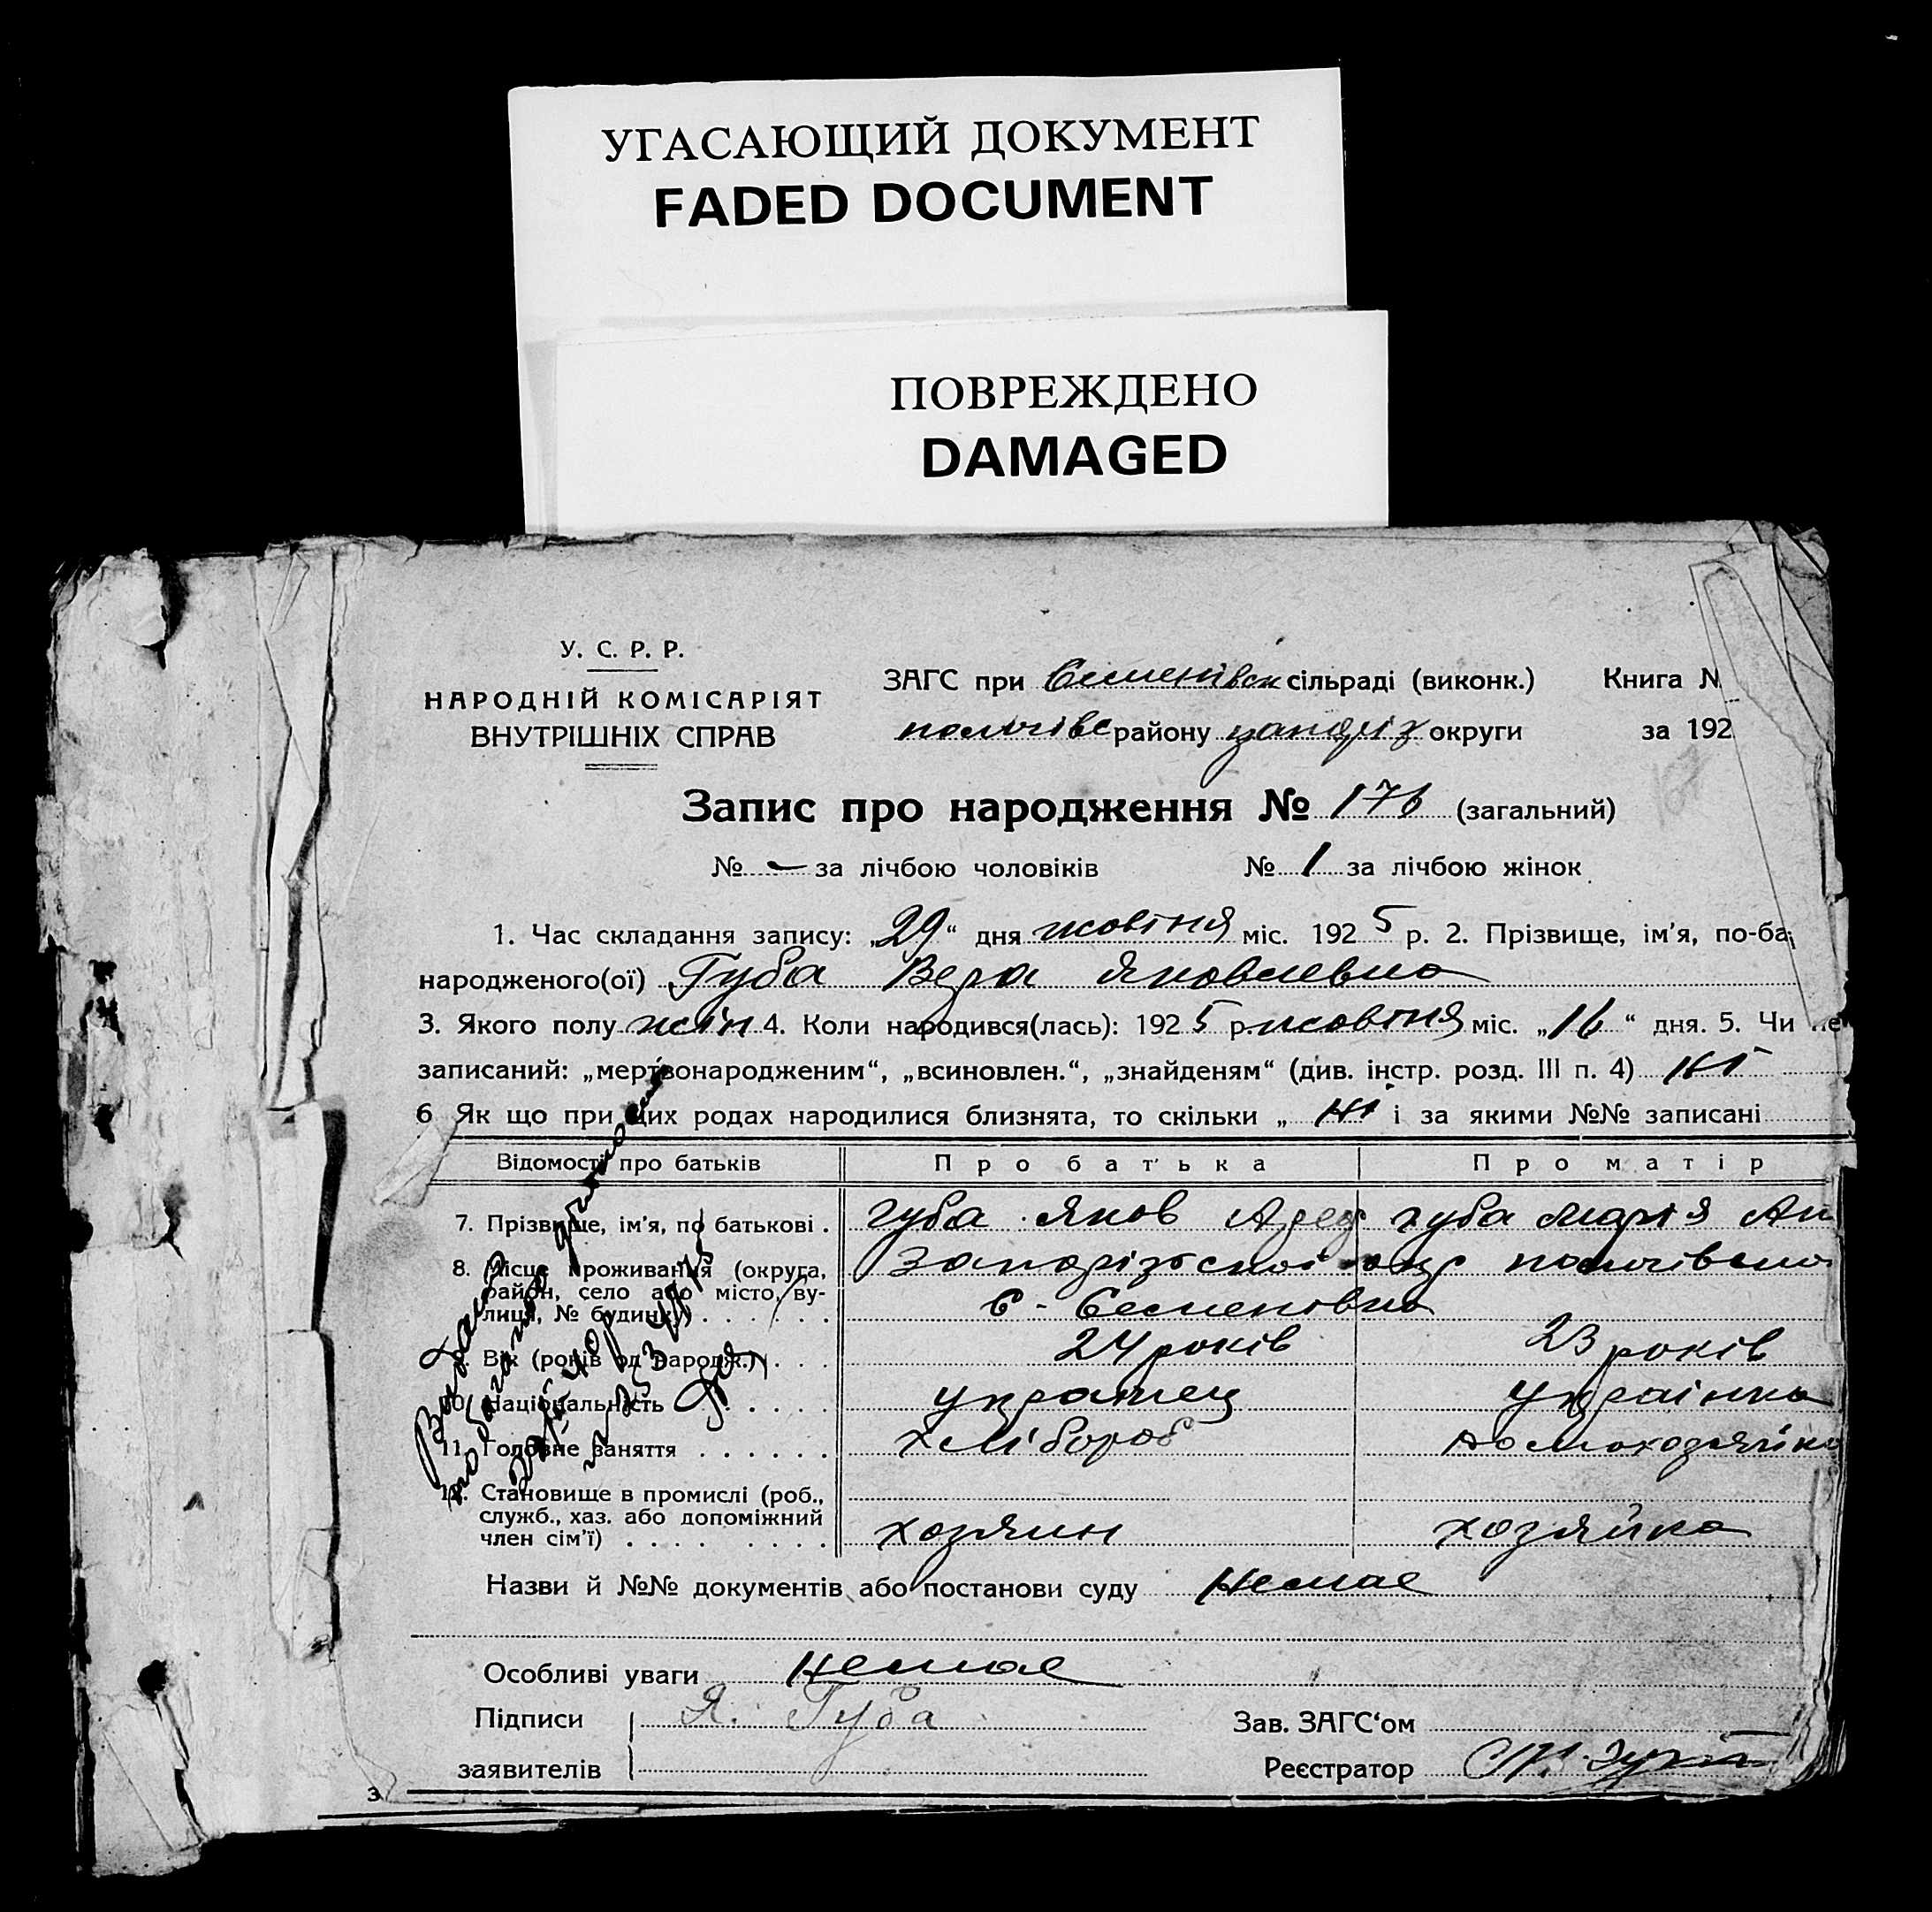 УГАСАЮЩИЙ ДОКУМЕНТ
FADED DOCUMENT
ПОВРЕЖДЕНО
DAMAGED
У. С. Р. Р.
НАРОДНІЙ КОМІСАРІЯТ
ВНУТРІШНІХ СПРАВ
ЗАГС при Семенівск сільраді (виконк.) Книга №
пологівс району запоріз округи за 192
Запис про народження № 176 (загальний)
№ - за лічбою чоловіків № 1 за лічбою жінок
1. Час складання запису: „29“ дня жовтня міс. 1925 р. 2. Прізвище, ім'я, по-ба
народженого(ої) Губа Вера Яковлевна
3. Якого полу жін 4. Коли народився(лась): 1925 р. жовтня міс. „16“ дня. 5. Чи не
записаний: „мертвонародженим“, „всиновлен.“, „знайденям“ (див. інстр. розд. III п. 4) ні
6 Як що при цих родах народилися близнята, то скільки „ ні і за якими №№ записані
Відомості про батьків Про батька Про матір
7. Прізвище, ім'я, по батькові . губа Яков губа Марія Ан
8. Місце проживання (округа,
район, село або місто, ву-
лиця, № будинку) . . . . . .
Запорізької окр пологівсько
с. Семеновка
Вік (років од народж.) . . . 24 років 23 років
10. Національність . . . . . украінец украінка
11. Головне заняття . . . . . . хлібороб домохозяйка
Становище в промислі (роб.,
служб., хаз. або допоміжний
член сім'ї) . . . . . . . . хозяин хозяйка
Назви й №№ документів або постанови суду немае
Особливі уваги немае
Підписи Я. Губа Зав. ЗАГС‘ом
заявителів Реєстратор
3